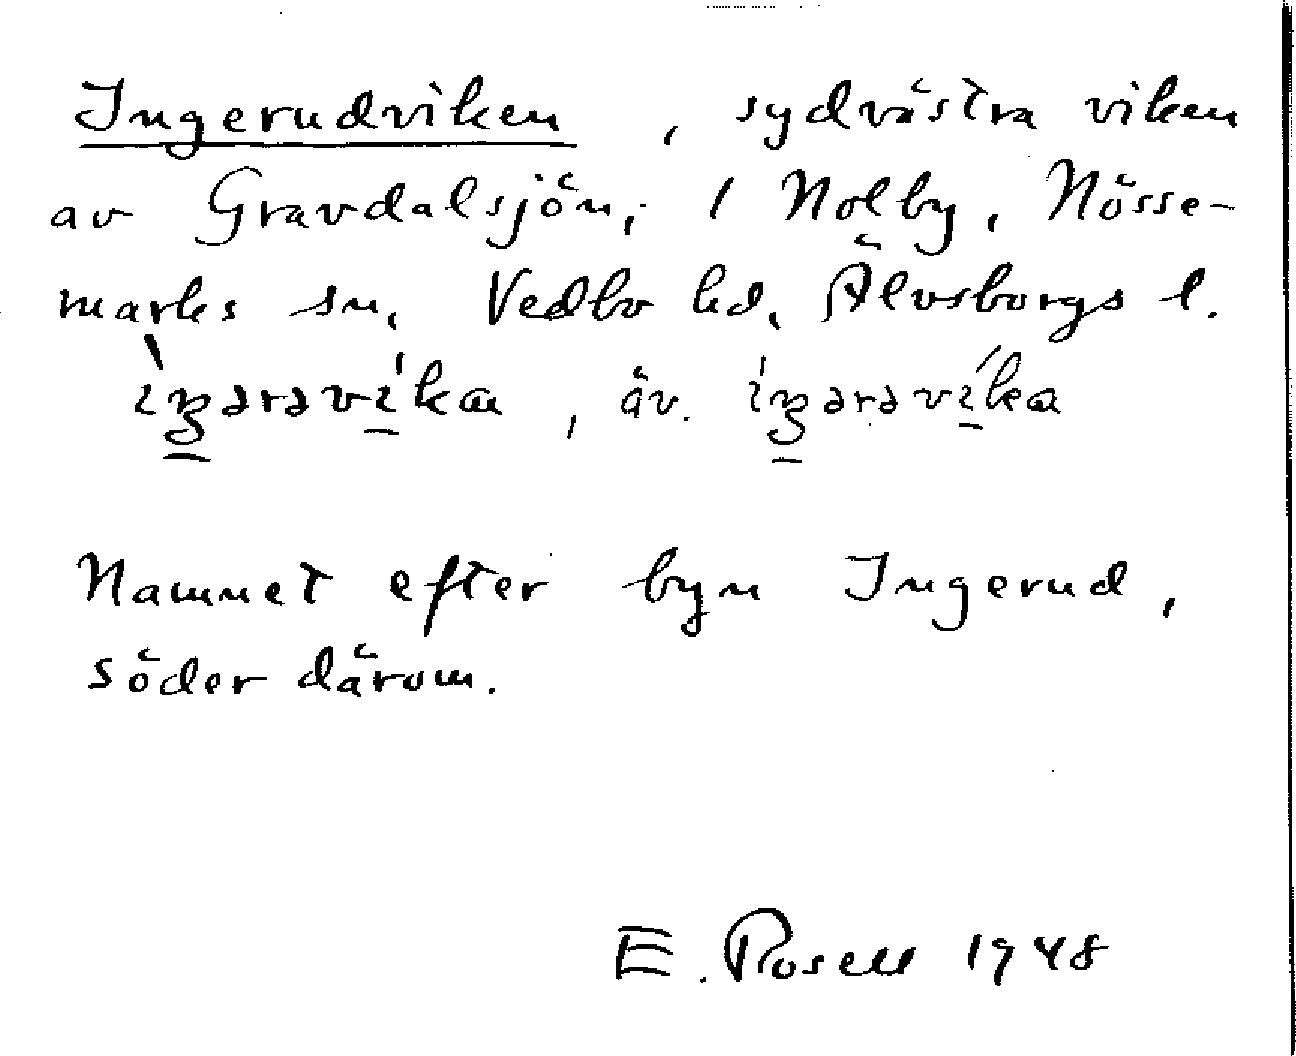 Ingerudviken, sydvästra viken
av Gravdalsjön, i Nolby, Nösse-
marks sn, Vedbo hd, Älvsborgs l.
, äv.
Namnet efter byn Ingerud,
söder därom.
E. Rosell 1948